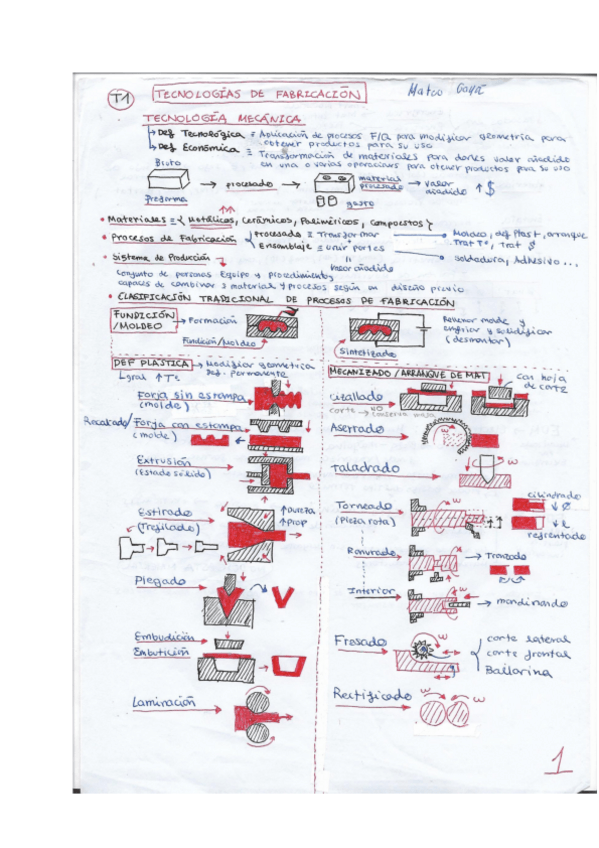 T1
TECNOLOGÍAS DE FABRICACIÓN
Mateo Gayá
TECNOLOGÍA MECÁNICA
Def Tecnológica ≡ Aplicación de procesos F/Q para modificar geometría para
obtener productos para su uso
Def Económica ≡ Transformación de materiales para darles valor añadido
en una o varias operaciones para obtener productos para su uso
Bruto
Preforma
procesado
material
procesado
gasto
valor
añadido ↑ $
• Materiales ≡ { Metálicos, Cerámicos, Poliméricos, Compuestos }
• Procesos de Fabricación
Procesado ≡ Transformar
Moldeo, def Plast, arranque
Trat Tº, trat $
Ensamblaje ≡ unir partes
soldadura, Adhesivo...
valor añadido
• Sistema de Producción
Conjunto de personas Equipo y procedimientos
capaces de combinar s material y procesos según un diseño previo
• CLASIFICACIÓN TRADICIONAL DE PROCESOS DE FABRICACIÓN
FUNDICIÓN
/MOLDEO
Formación
Fundición/Moldeo
Sintetizado
Rellenar molde y
enfriar y solidificar
(desmontar)
DEF PLASTICA → Modificar geometría
def. permanente
Lgral ↑Tª
Forja sin estampa
(molde)
Recalcado/Forja con estampa
(molde)
Extrusión
(Estado sólido)
Estirado
(Trefilado)
↑ dureza
↑ prop
Plegado
Embudición
Embutición
Laminación
MECANIZADO/ARRANQUE DE MAT
Cizallado
corte → NO conserva masa
con hoja
de corte
Aserrado
Taladrado
ω
Torneado
(Pieza rota)
ω
cilindrado
↓ Ø
↓ L
refrentado
Ranurado
ω
→ Tronzado
Interior
ω
→ mandrinado
Fresado
ω
corte lateral
corte frontal
Bailarina
Rectificado
ω
1